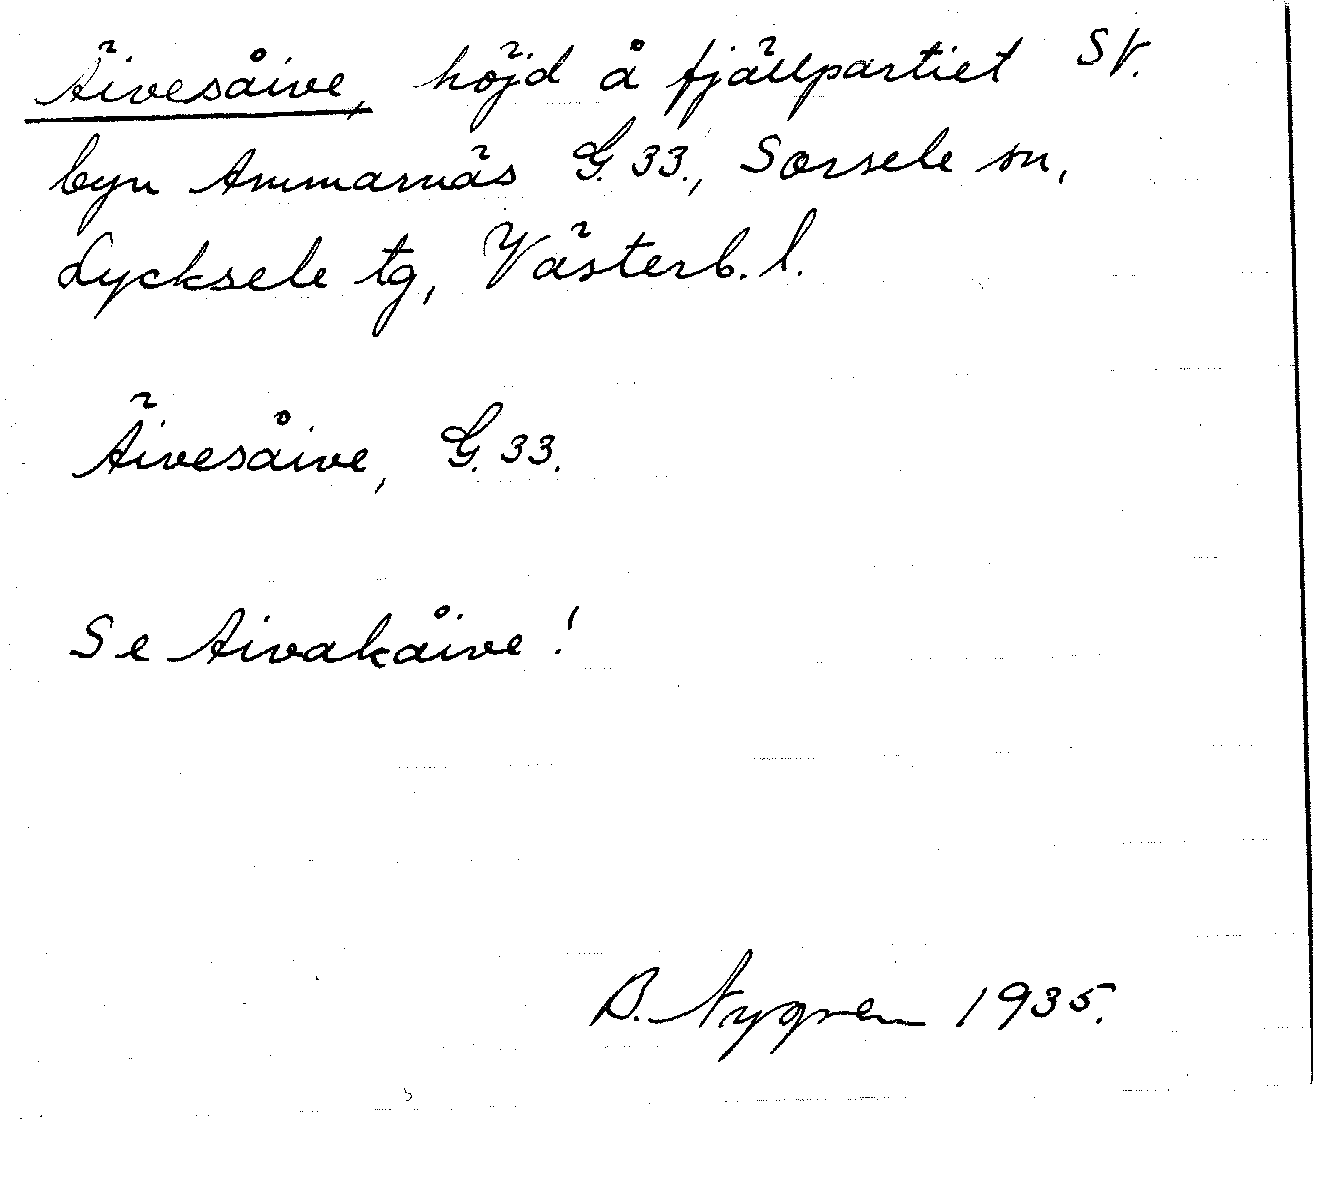 Äivesåive, höjd å fjällpartiet SV.
byn Ammarnäs G. 33., Sorsele sn,
Lycksele tg, Västerb. l.
Äivesåive, G. 33.
Se Aivakåive!
B. Nygren 1935.